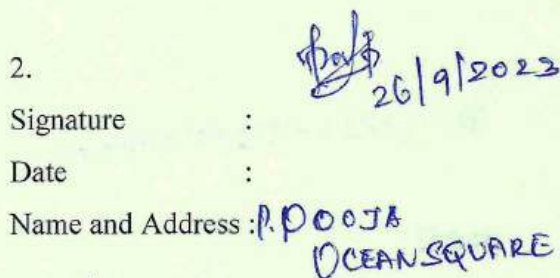 2.
26/9/2023
Signature :
Date :
Name and Address : P. POOJA
OCEAN SQUARE